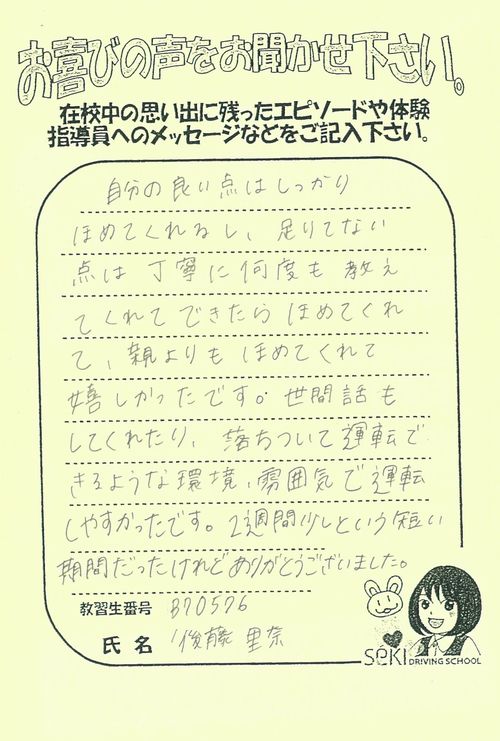 お喜びの声をお聞かせ下さい。
在校中の思い出に残ったエピソードや体験
指導員へのメッセージなどをご記入下さい。
自分の良い点はしっかり
ほめてくれるし、足りてない
点は丁寧に何度も教え
てくれてできたらほめてくれ
て、親よりもほめてくれて
嬉しかったです。世間話も
してくれたり、落ちついて運転で
きるような環境、雰囲気で運転
しやすかったです。2週間少しという短い
期間だったけれどありがとうございました。
教習生番号 B70576
氏名 後藤 里奈
SEKI DRIVING SCHOOL